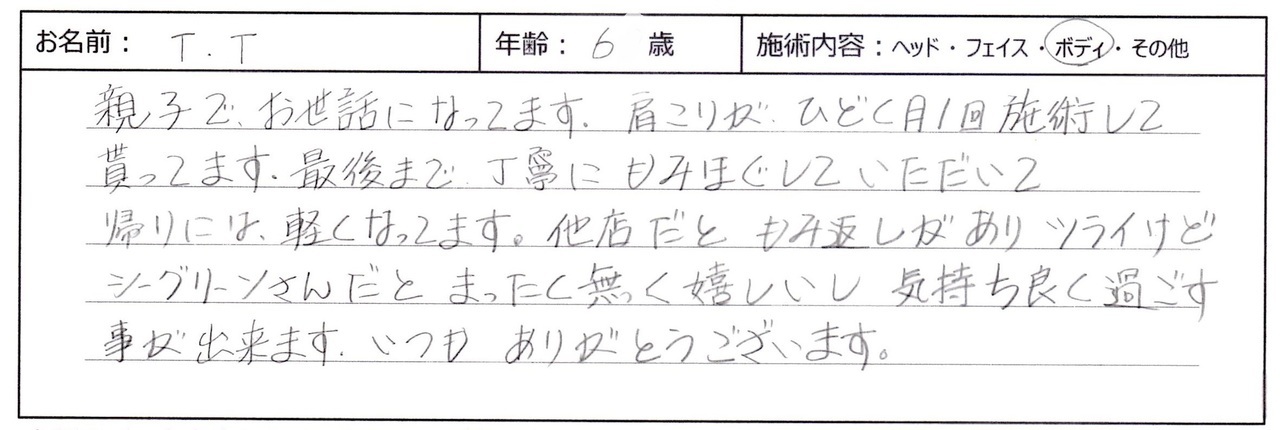 お名前： T.T 年齢： 6 歳 施術内容：ヘッド・フェイス・ボディ・その他
親子で、お世話になってます。肩こりが、ひどく月1回施術して
貰ってます。最後まで、丁寧にもみほぐしていただいて
帰りには、軽くなってます。他店だと もみ返しがあり ツライけど
シーグリーンさんだと まったく無っく嬉しいし 気持ち良く過ごす
事が出来ます。いつも ありがとうございます。